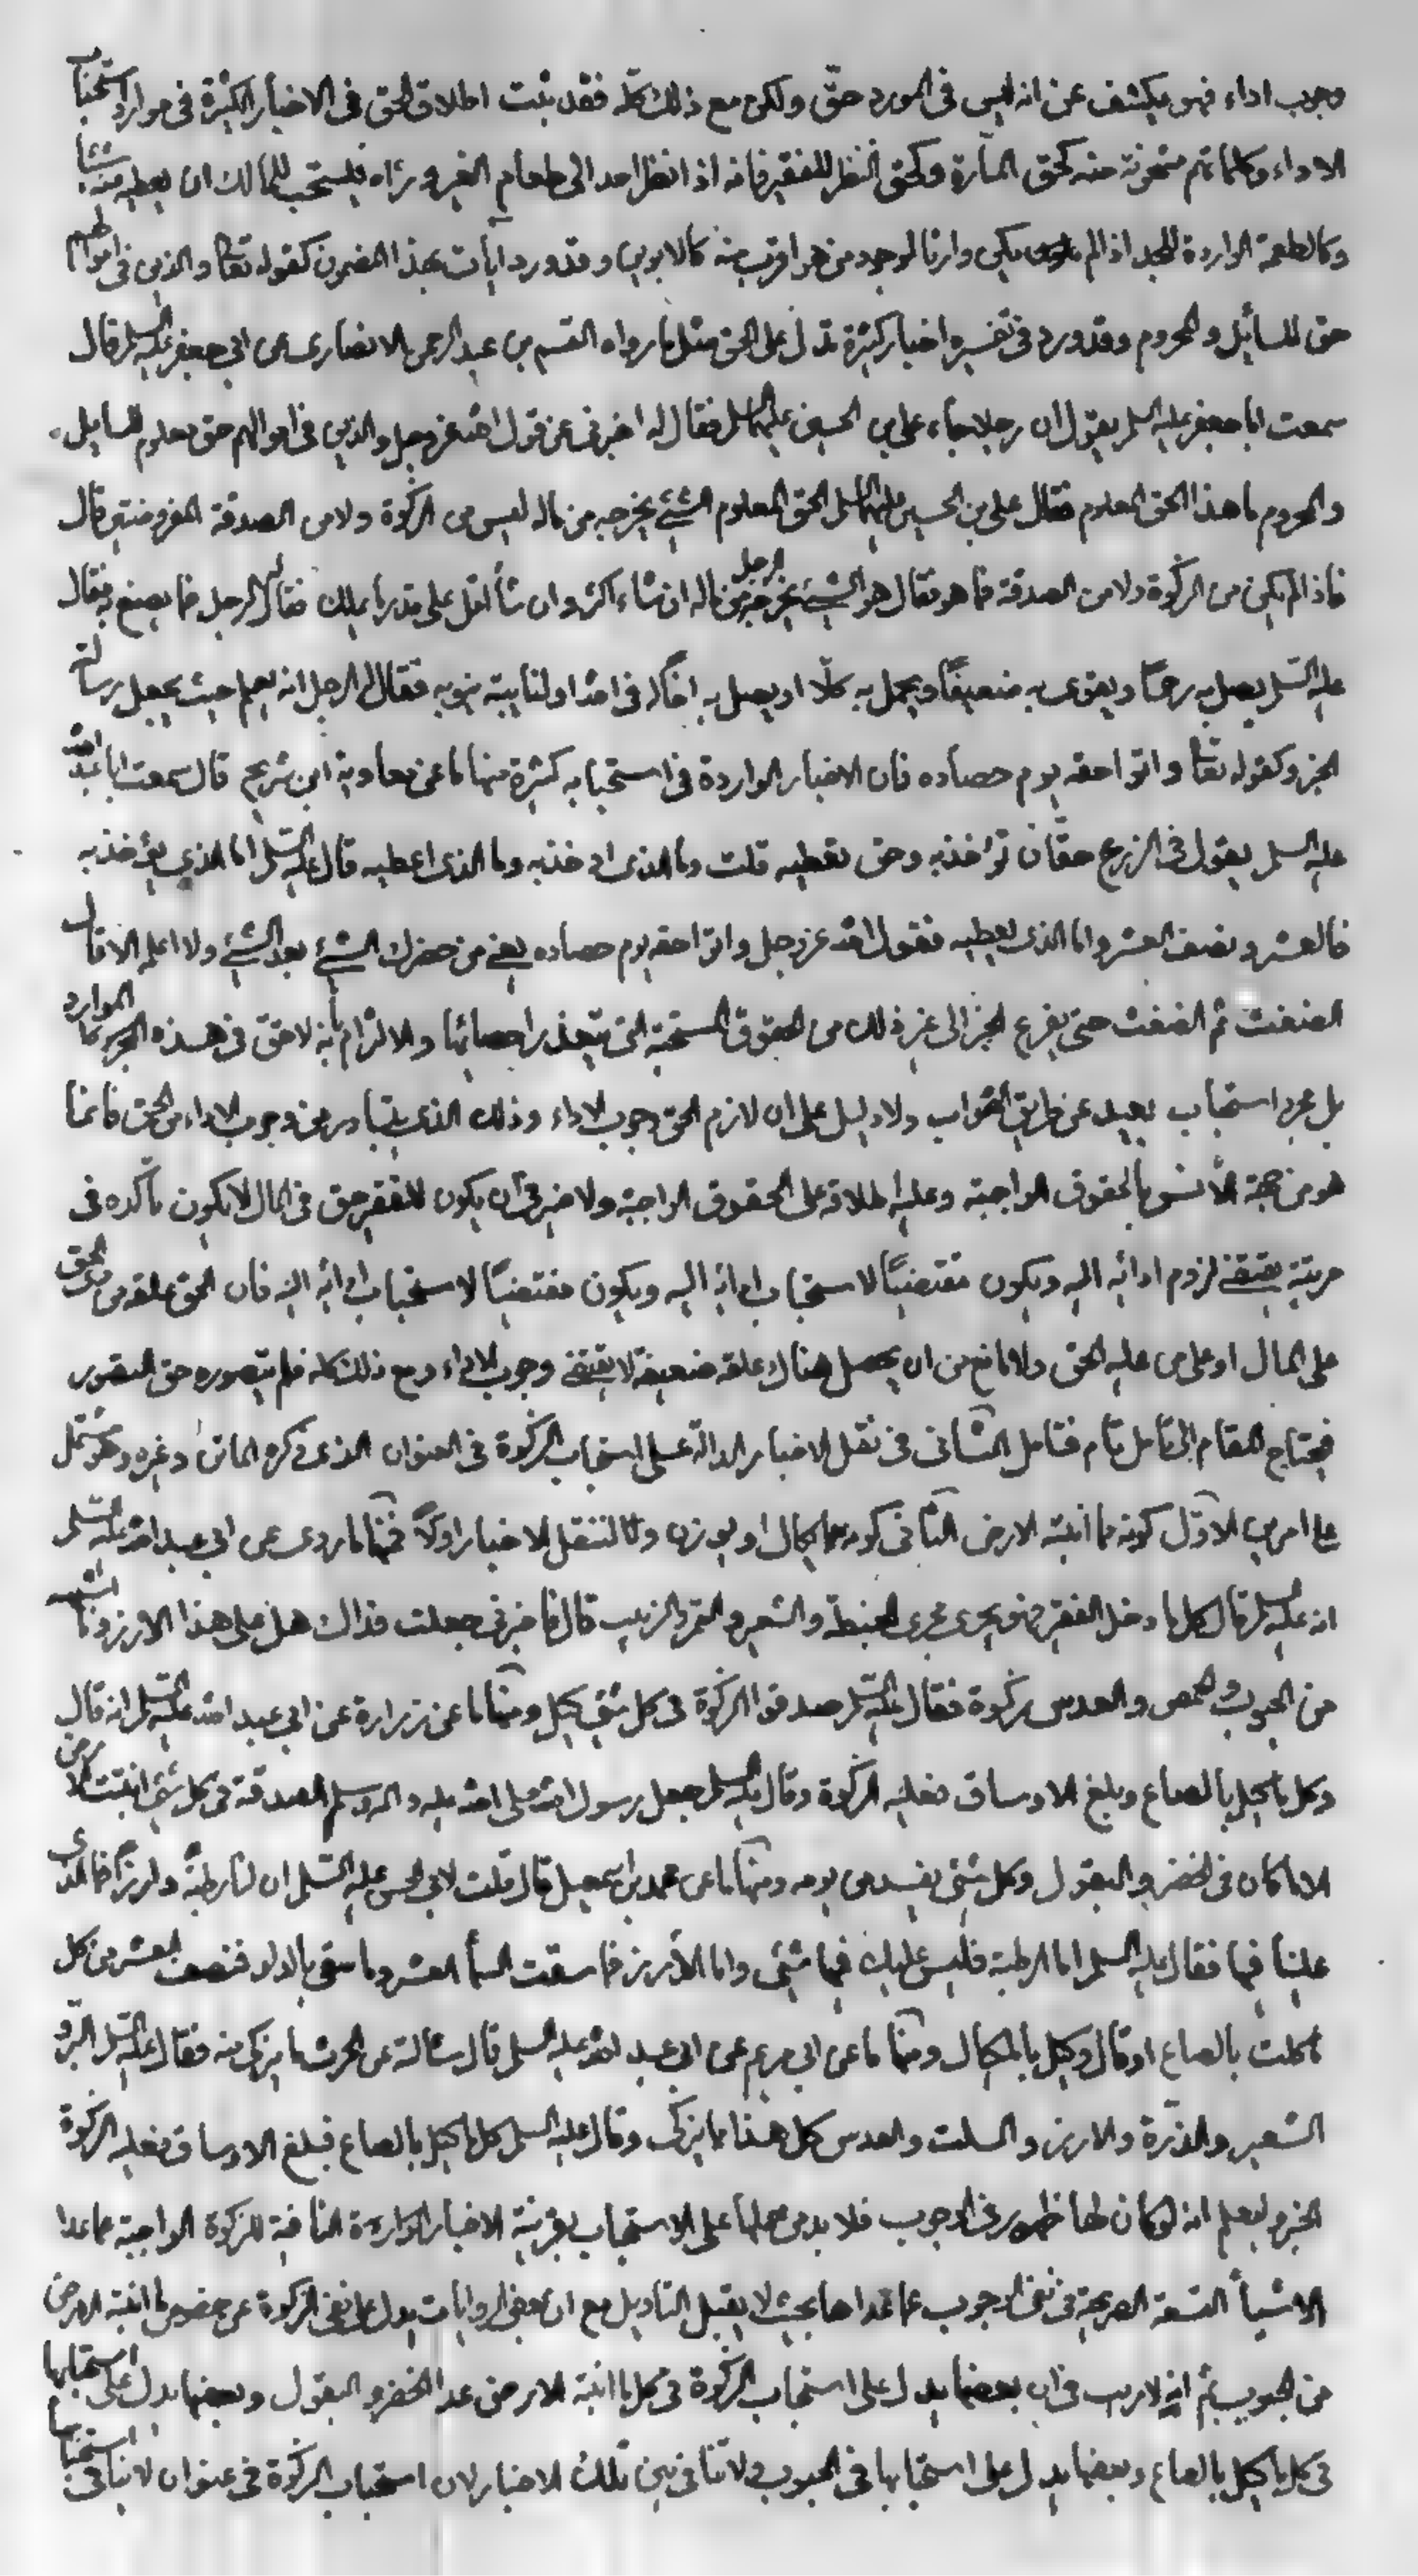 وجوب اداء فهو يكشف عن انه ليس فى المورد حقّ ولكن مع ذلك كلّه فقد ثبت اطلاق الحق فى الاخبار الكثيرة فى موارد استحباب
الاداء وكلما تم مئونة منه كحق المارة وكحق النظر للفقير فانه اذا نظر احد الى طعام الغير و رءاه فيستحب للمالك ان يعطيه منه شيئا
وكالطعمة الواردة للجد اذا لم يكن وارثا لوجود من هو اقرب منه كالابوين وقد ورد آيات بهذا المضمون كقوله تعالى والذين فى اموالهم
حق للسايل والمحروم وقد ورد فى تفسيره اخبار كثيرة تدل على الحق مثل ما رواه القسم بن عبد الرحمن الانصارى عن ابى جعفر عليه السلم قال
سمعت ابا جعفر عليه السلم يقول ان رجلا جاء على بن الحسين عليهما السلم فقال له اخبرنى عن قول الله عز وجل والذين فى اموالهم حق معلوم للسايل
والمحروم ما هذا الحق المعلوم فقال على بن الحسين عليهما السلم الحق المعلوم الشئ يخرجه من ماله ليس من الزكوة ولا من الصدقة المفروضتين قال
فاذا لم يكن من الزكوة ولا من الصدقة فما هو فقال هو الشئ يخرجه الرجل من ماله ان شاء اكثر وان شأ اقل على قدر ما يملك فقال له الرجل فما يصنع به فقال
عليه السلم يصل به رحمًا ويقوى به ضعيفًا ويحمل به كلّا او يصل به اخًا له فى الله او لنايبة تنوبه فقال الرجل الله يعلم حيث يجعل رسالته
الخبر وكقوله تعالى واتوا حقه يوم حصاده فان الاخبار الواردة فى استحبابه كثيرة منها ما عن معاوية ابن شريح قال سمعت ابا عبد الله
عليه السلم يقول فى الزرع حقان حق تؤاخذ به وحق تعطيه قلت وما الذى اوخذ به وما الذى اعطيه قال عليه السلم اما الذى يؤخذ به
فالعشر ونصف العشر واما الذى يعطيه فقول الله عز وجل واتوا حقه يوم حصاده يعنى من حضرك الشئ بعد الشئ ولا اعلمه الا قال
الضغث ثم الضغث حتى يفرغ الخبر الى غير ذلك من الحقوق المستحبة التى يتعذر احصائها والالتزام بانه لا حق فى هذه الموارد
بل مجرد استحباب بعيد عن طريق الصواب ولا دليل على ان لازم الحق وجوب الاداء وذلك الذى يتبادر من وجوب الاداء من الحق فانما
هو من جهة الانس بالحقوق الواجبة وغلبة اطلاقه على الحقوق الواجبة ولا ضير فى ان يكون للفقير حق فى المال لا يكون تأكده فى
مرتبة يقتضى لزوم ادائه اليه ويكون مقتضيًا لاستحباب ادائه اليه ويكون مقتضيًا لاستحباب ادائه اليه فان الحق علقة من
على المال او على من عليه الحق ولا مانع من ان يحصل هناك علقة ضعيفة لا يقتضى وجوب الاداء ومع ذلك كله فلم يتصوره حق التصور
فيحتاج المقام الى تامل تام فتامل الثانى فى نقل الاخبار الدالة على استحباب الزكوة فى العنوان الذى ذكره الماتن وغيره وهو مشتمل
على امرين الاول كونه مما انبته الارض الثانى كونه مما يكال او يوزن ولننقل الاخبار اولًا فمنها ما روى عن ابى عبد الله عليه السلم
انه عليه السلم قال كل ما دخل القفيز فهو يجرى مجرى الحنطة والشعير والتمر والزبيب قال فاخبرنى جعلت فداك هل على هذا الارز وما اشبهه
من الحبوب والحمص والعدس زكوة فقال عليه السلم صدقوا الزكوة فى كل شئ كيل ومنها ما عن زرارة عن ابى عبد الله عليه السلم انه قال
وكل ما كيل بالصاع وبلغ الاوساق فعليه الزكوة وقال عليه السلم جعل رسول الله صلى الله عليه واله وسلم الصدقة فى كل شئ انبتت الارض
الا ما كان فى الخضر والبقول وكل شئ يفسد من يومه ومنها ما عن محمد بن اسمعيل قال قلت لابى الحسن عليه السلم ان لنا رطبةً وارزًا فما الذى
علينا فيها فقال عليه السلم اما الرطبة فليس عليك فيها شئ واما الأرز فما سقت السمأ العشر وما سقى بالدلو فنصف العشر من كل
ما كلت بالصاع او قال وكيل بالمكيال ومنها ما عن ابى مريم عن ابى عبد الله عليه السلم قال سئالته عن الحرث ما يزكى منه فقال عليه السلم البر و
الشعير والذرة والارز والسلت والعدس كل هذا مما يزكى وقال عليه السلم كل ما كيل بالصاع فبلغ الاوساق فعليه الزكوة
الخبر وليعلم انه لو كان لها ظهور فى الوجوب فلا بد من حملها على الاستحباب بقرينة الاخبار الواردة النافية للزكوة الواجبة عما عدا
الاشيأ التسعة الصريحة فى نفى الوجوب عما عداها بحيث لا يقبل التاويل مع ان بعض الروايات يدل على نفى الزكوة عن بعض ما انبته الارض
من الحبوب ثم انه لا ريب فى ان بعضها يدل على استحباب الزكوة فى كل ما انبته الارض عدا الخضر والبقول وبعضها يدل على استحبابها
فى كل ما كيل بالصاع وبعضها يدل على استحبابها فى الحبوب ولا تنافى بين تلك الاخبار لان استحباب الزكوة فى عنوان لا ينافى استحبابها